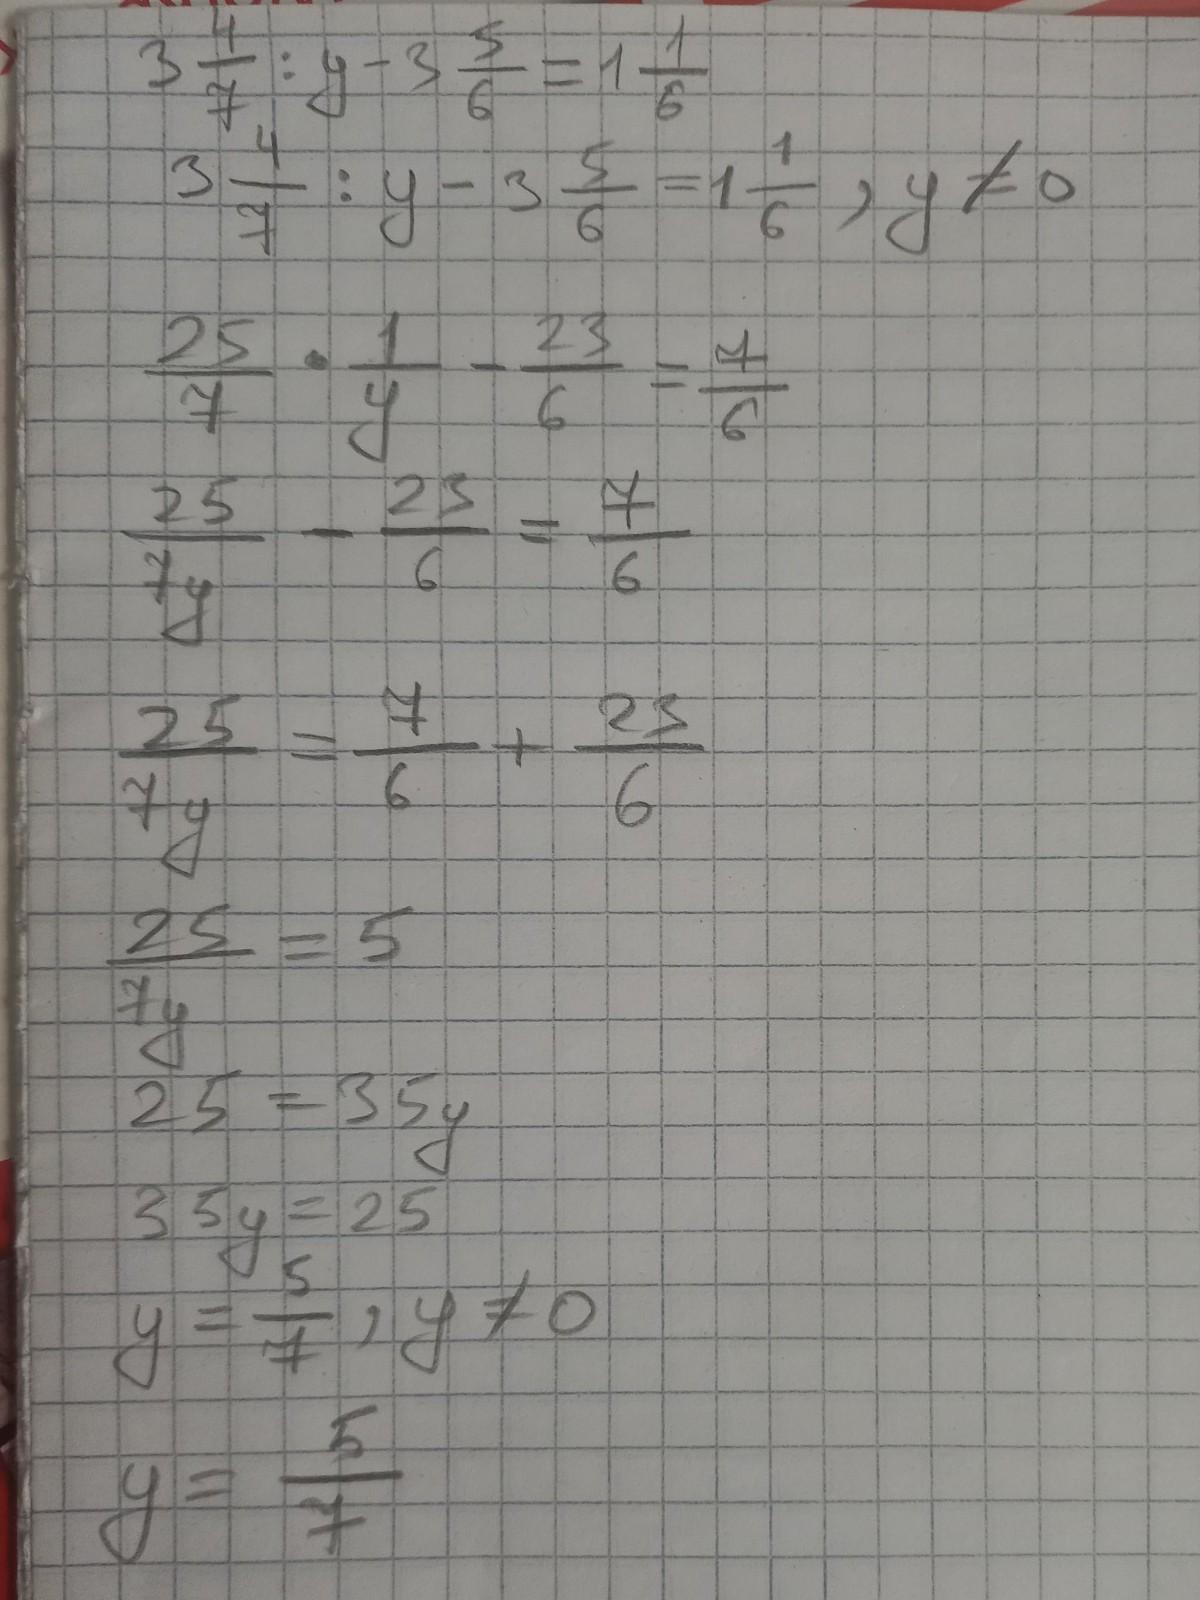 3 4/7 : y - 3 5/6 = 1 1/6
3 4/7 : y - 3 5/6 = 1 1/6 , y ≠ 0
25/7 · 1/y - 23/6 = 7/6
25/7y - 23/6 = 7/6
25/7y = 7/6 + 23/6
25/7y = 5
25 = 35y
35y = 25
y = 5/7 , y ≠ 0
y = 5/7